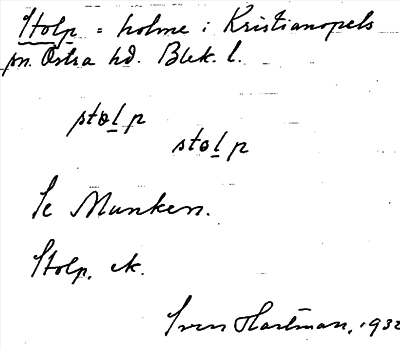 Stolp = holme i Kristianopels
sn. Östra hd. Blek. l.
stolp
stolp
Se Munken.
Stolp, ek.
Sven Hartman, 1932